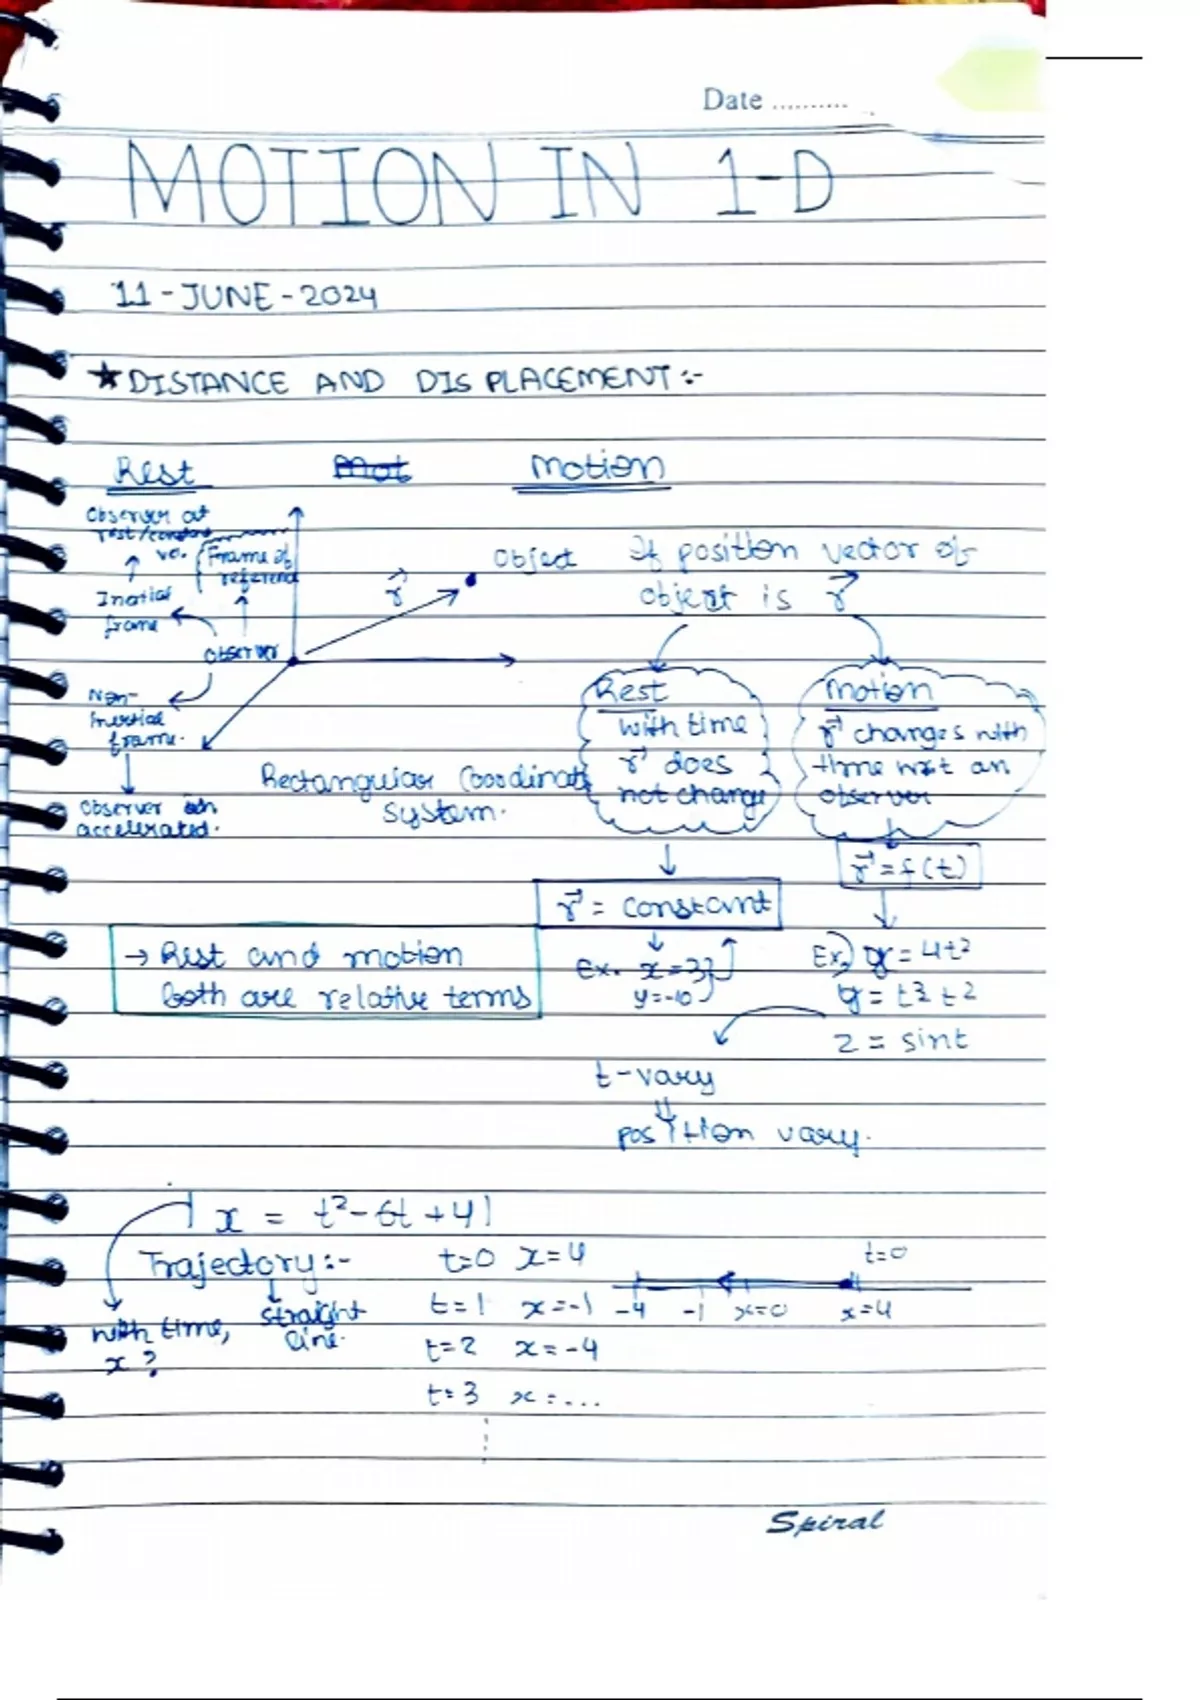 Date ..........
MOTION IN 1-D
11-JUNE-2024
★ DISTANCE AND DISPLACEMENT :-
Rest Mot Motion
Observer at
rest/constant
ve.
Frame of
reference
Inertial
frame
Observer
Non-
Inertial
frame.
Observer
accelerated.
r⃗
Object
If position vector of
object is r⃗
Rectangular Coordinate
system.
Rest
with time
r⃗ does
not change
Motion
r⃗ changes with
time wrt an
observer
r⃗ = constant
r⃗ = f(t)
→ Rest and motion
both are relative terms
Ex. x = 3
y = -10
Ex. = 4t²
y = t² t²
z = sint
t-vary
⇓
position vary.
x = t² - 6t + 4
Trajectory :-
straight
line.
with time,
x ?
t=0 x=4
t=1 x=-1
t=2 x=-4
t=3 x=...
t=0
-4 -1 x=0 x=4
Spiral